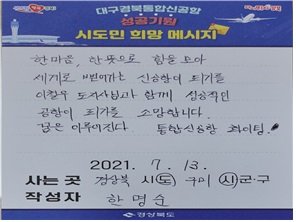 대구경북통합신공항
성공기원
시도민 희망 메시지
한마음, 한뜻으로 힘을 모아
세계로 뻗어가는 신공항이 되기를
이철우 도지사님과 함께 성공적인
공항이 되기를 소망합니다.
꿈은 이루어진다 통합신공항 화이팅!
2021. 7. 13.
사는 곳 경상북 시·도 구미 시·군·구
작성자 한명순
경상북도